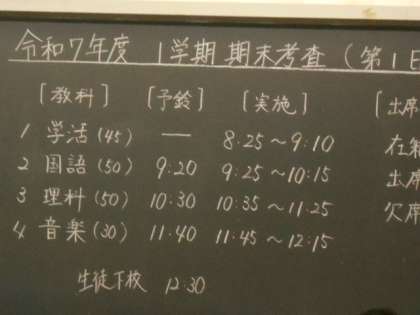 令和7年度 1学期 期末考査 (第1日
[教科] [予鈴] [実施] [出席
1 学活(45) — 8:25〜9:10 在籍
2 国語(50) 9:20 9:25〜10:15 出席
3 理科(50) 10:30 10:35〜11:25 欠席
4 音楽(30) 11:40 11:45〜12:15
生徒下校 12:30